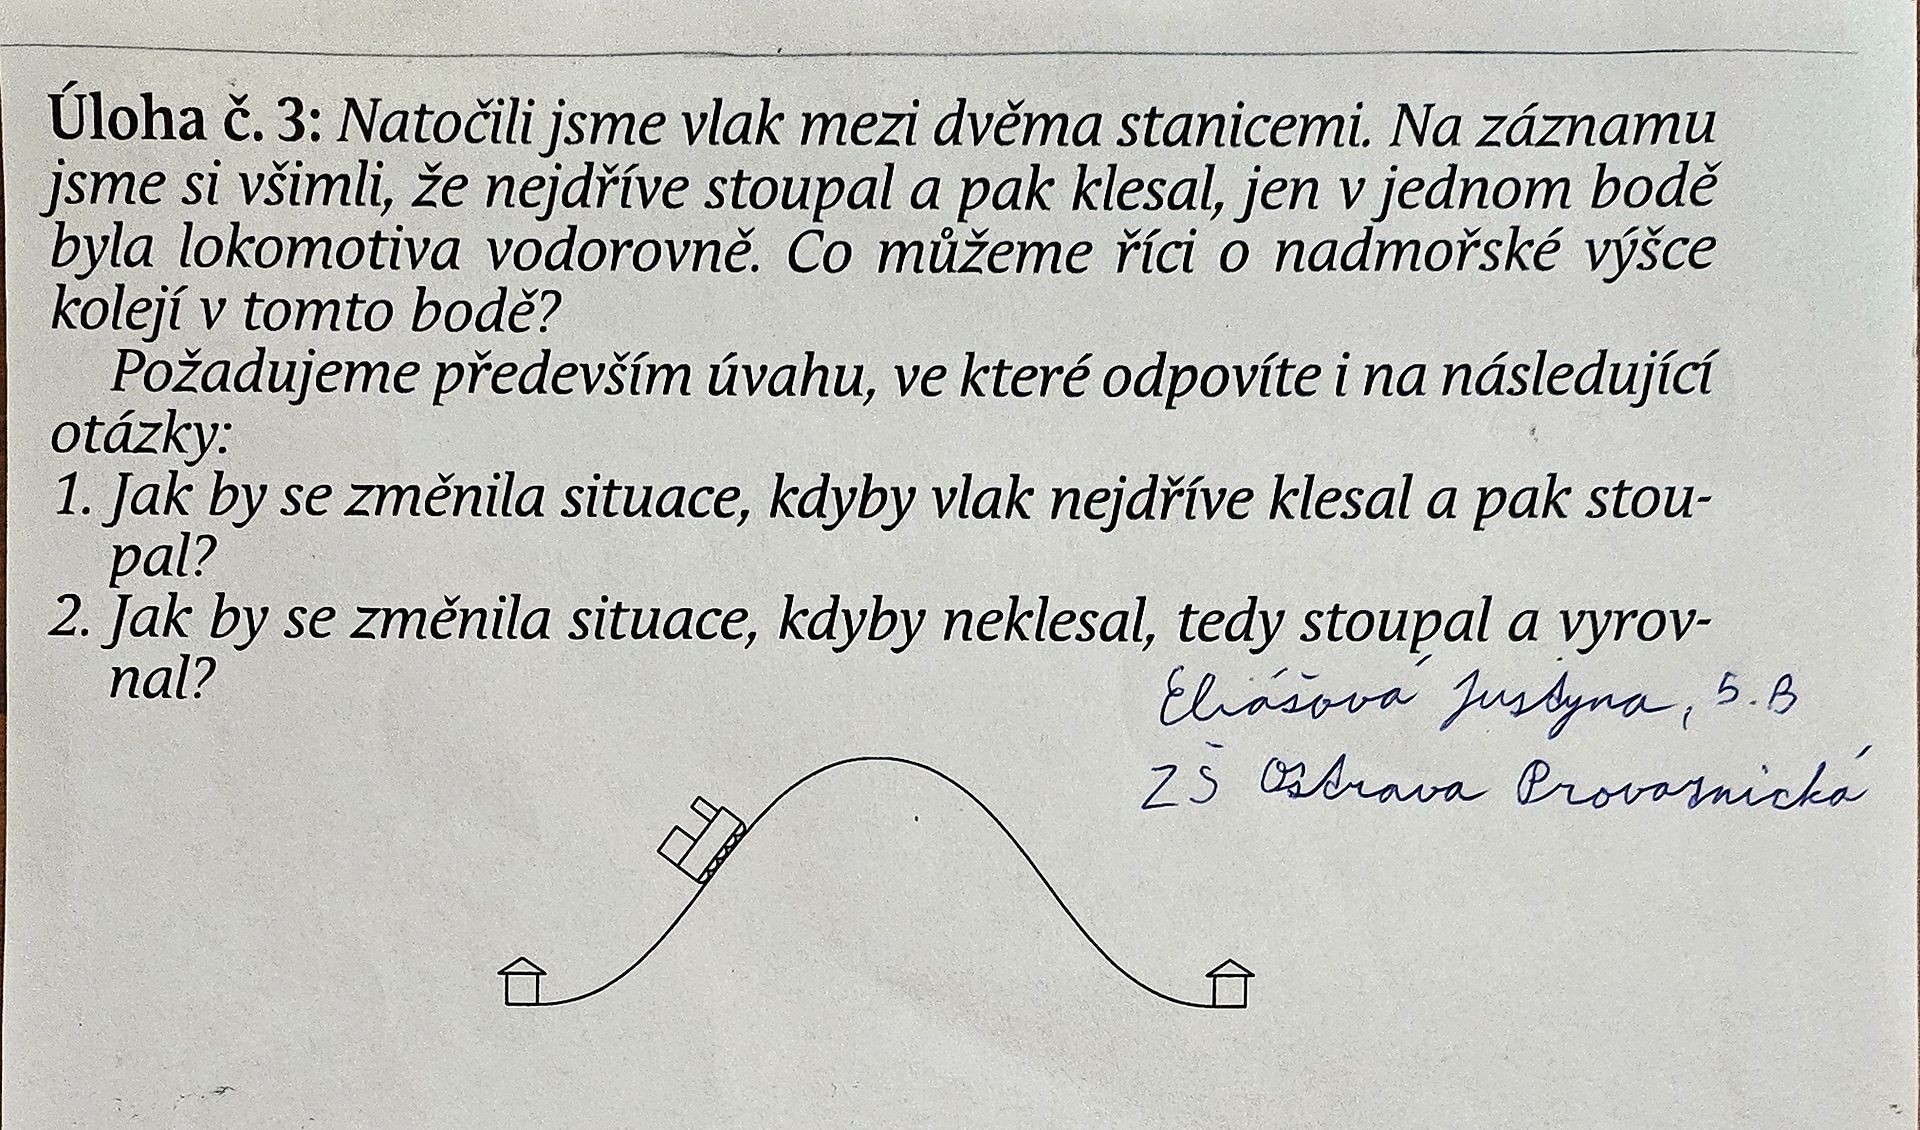 Úloha č. 3: Natočili jsme vlak mezi dvěma stanicemi. Na záznamu
jsme si všimli, že nejdříve stoupal a pak klesal, jen v jednom bodě
byla lokomotiva vodorovně. Co můžeme říci o nadmořské výšce
kolejí v tomto bodě?
Požadujeme především úvahu, ve které odpovíte i na následující
otázky:
1. Jak by se změnila situace, kdyby vlak nejdříve klesal a pak stou-
pal?
2. Jak by se změnila situace, kdyby neklesal, tedy stoupal a vyrov-
nal?
Eliášová Justyna, 5.B
ZŠ Ostrava Provaznická